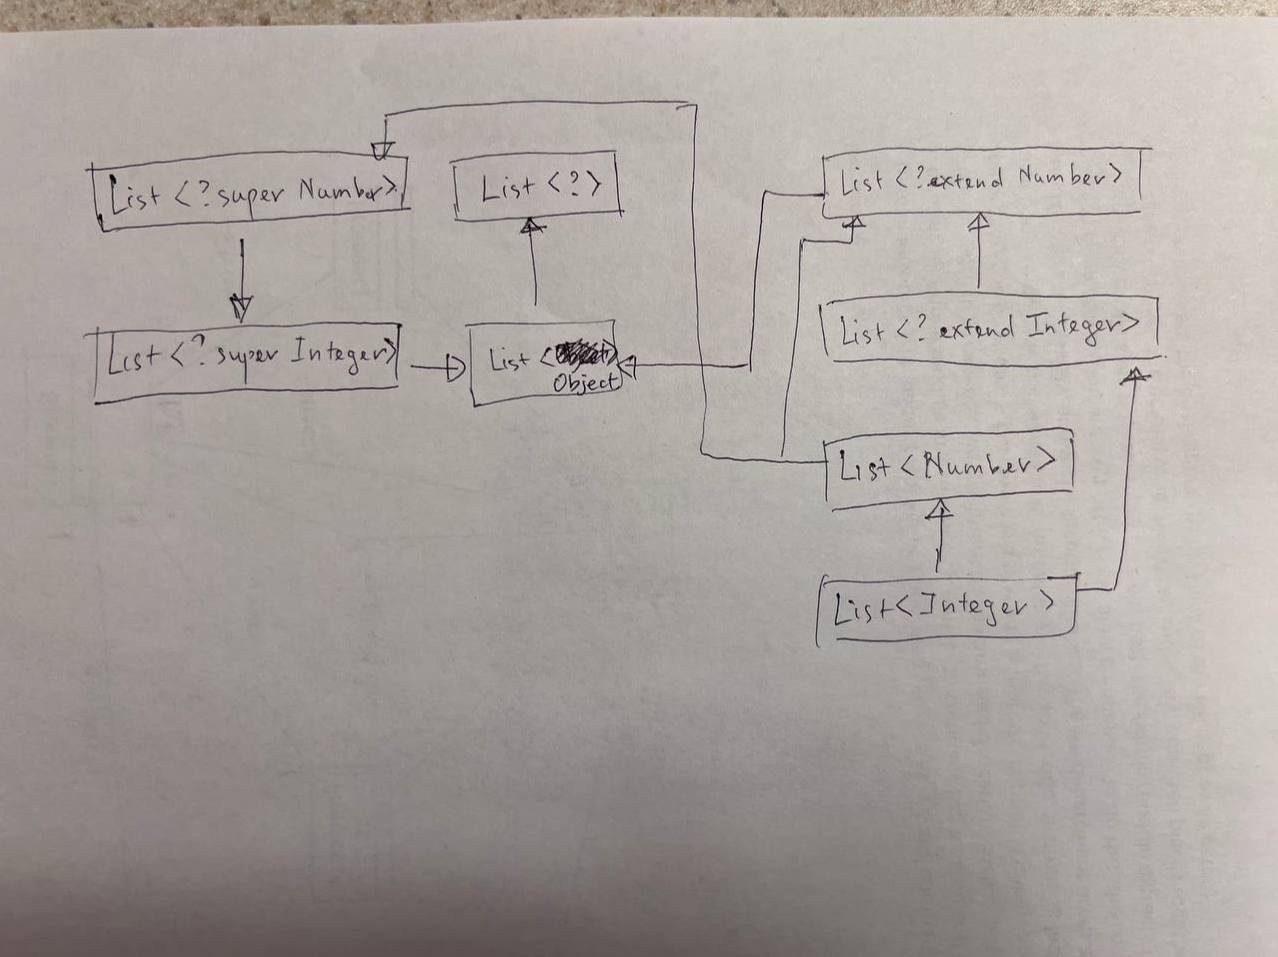 List <? super Number>
List <?>
List <? extend Number>
List <? super Integer>
List <
Object
List <? extend Integer>
List <Number>
List <Integer>